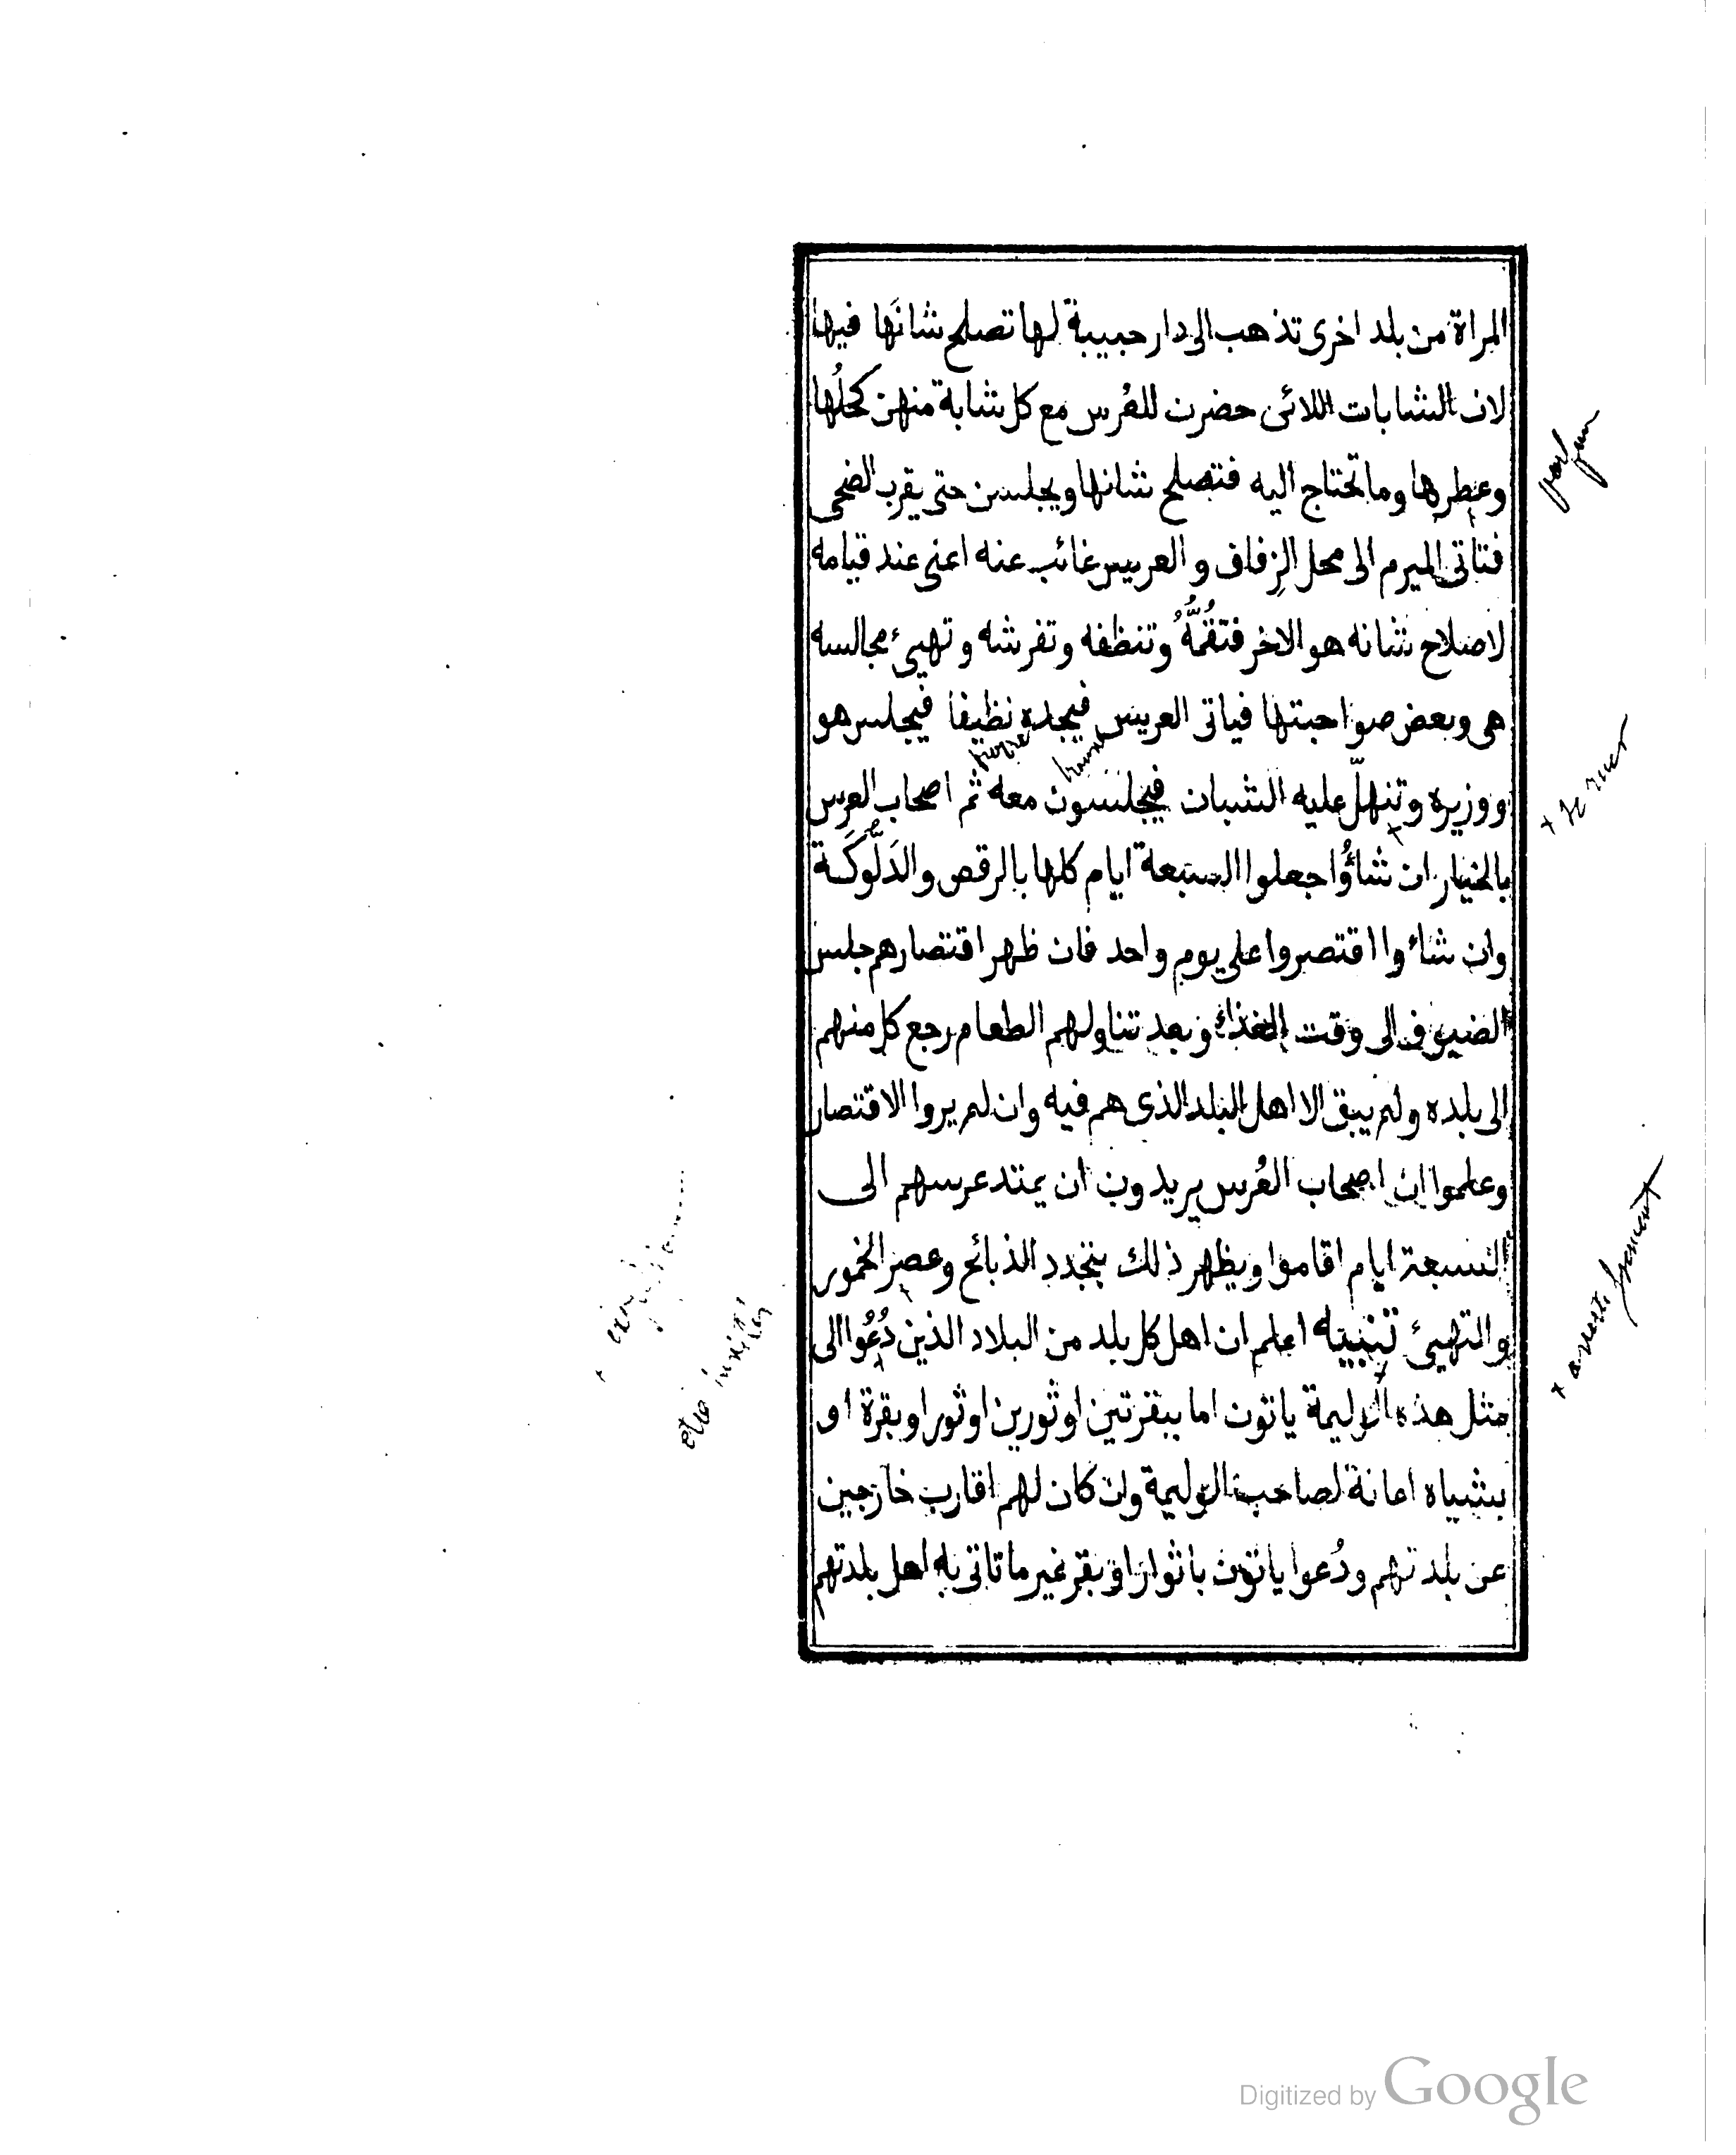 المراة من بلد اخرى تذهب الى دار حبيبة لها تصلح شانَها فيها
لان الشابات اللائى حضرن للعُرس مع كل شابة منهن كحلُها
وعطرها وما تحتاج اليه فتصلح شانها ويجلسن حتى يقرب الضحى
parfum
فتاتى الميرم الى محل الزِفاف و العريس غائب عنه اعنى عند قيامه
لاصلاح شانه هو الاخر فتقُمُّهُ وتنظفه وتفرشه وتهيئ مجالسه
هى وبعض صواحبتها فياتى العريس فيجده نظيفا فيجلس هو
ووزيره وتنهلّ عليه الشبان فيجلسون معه ثم اصحاب العرس
بالخيار ان شاؤُا جعلوا السبعة ايام كلها بالرقص والدَلُّوكَة
وان شاءوا اقتصروا على يوم واحد فان ظهر اقتصارهم جلس
الضيوف الى وقت الغذاء وبعد تناولهم الطعام رجع كل منهم
الى بلده ولم يبق الا اهل البلد الذى هم فيه وان لم يروا الاقتصار
وعلموا ان اصحاب العُرس يريدون ان يمتد عرسهم الى
السبعة ايام اقاموا ويظهر ذلك بتجدد الذبائح وعصر الخمور
والتهيئ تنبيه اعلم ان اهل كل بلد من البلاد الذين دُعُوا الى
+ avertissement
être invités
مثل هذه الوليمة ياتون اما ببقرتين او ثورين او ثور او بقرة او
بشياه اعانة لصاحب الوليمة وان كان لهم اقارب خارجين
عن بلدتهم ودُعوا ياتون باثوار او بقر غير ما تاتى به اهل بلدتهم
Digitized by Google